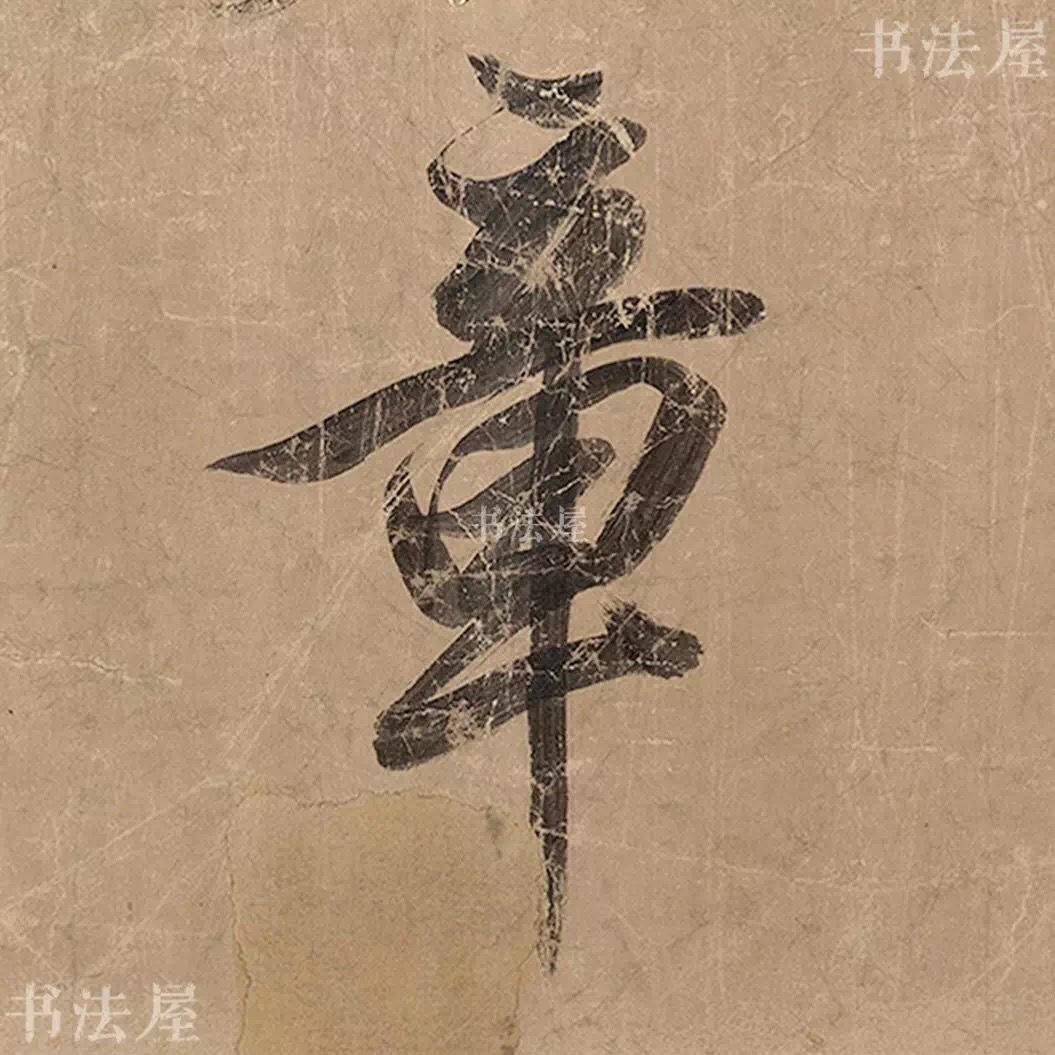 书法屋
章
书法屋
书法屋